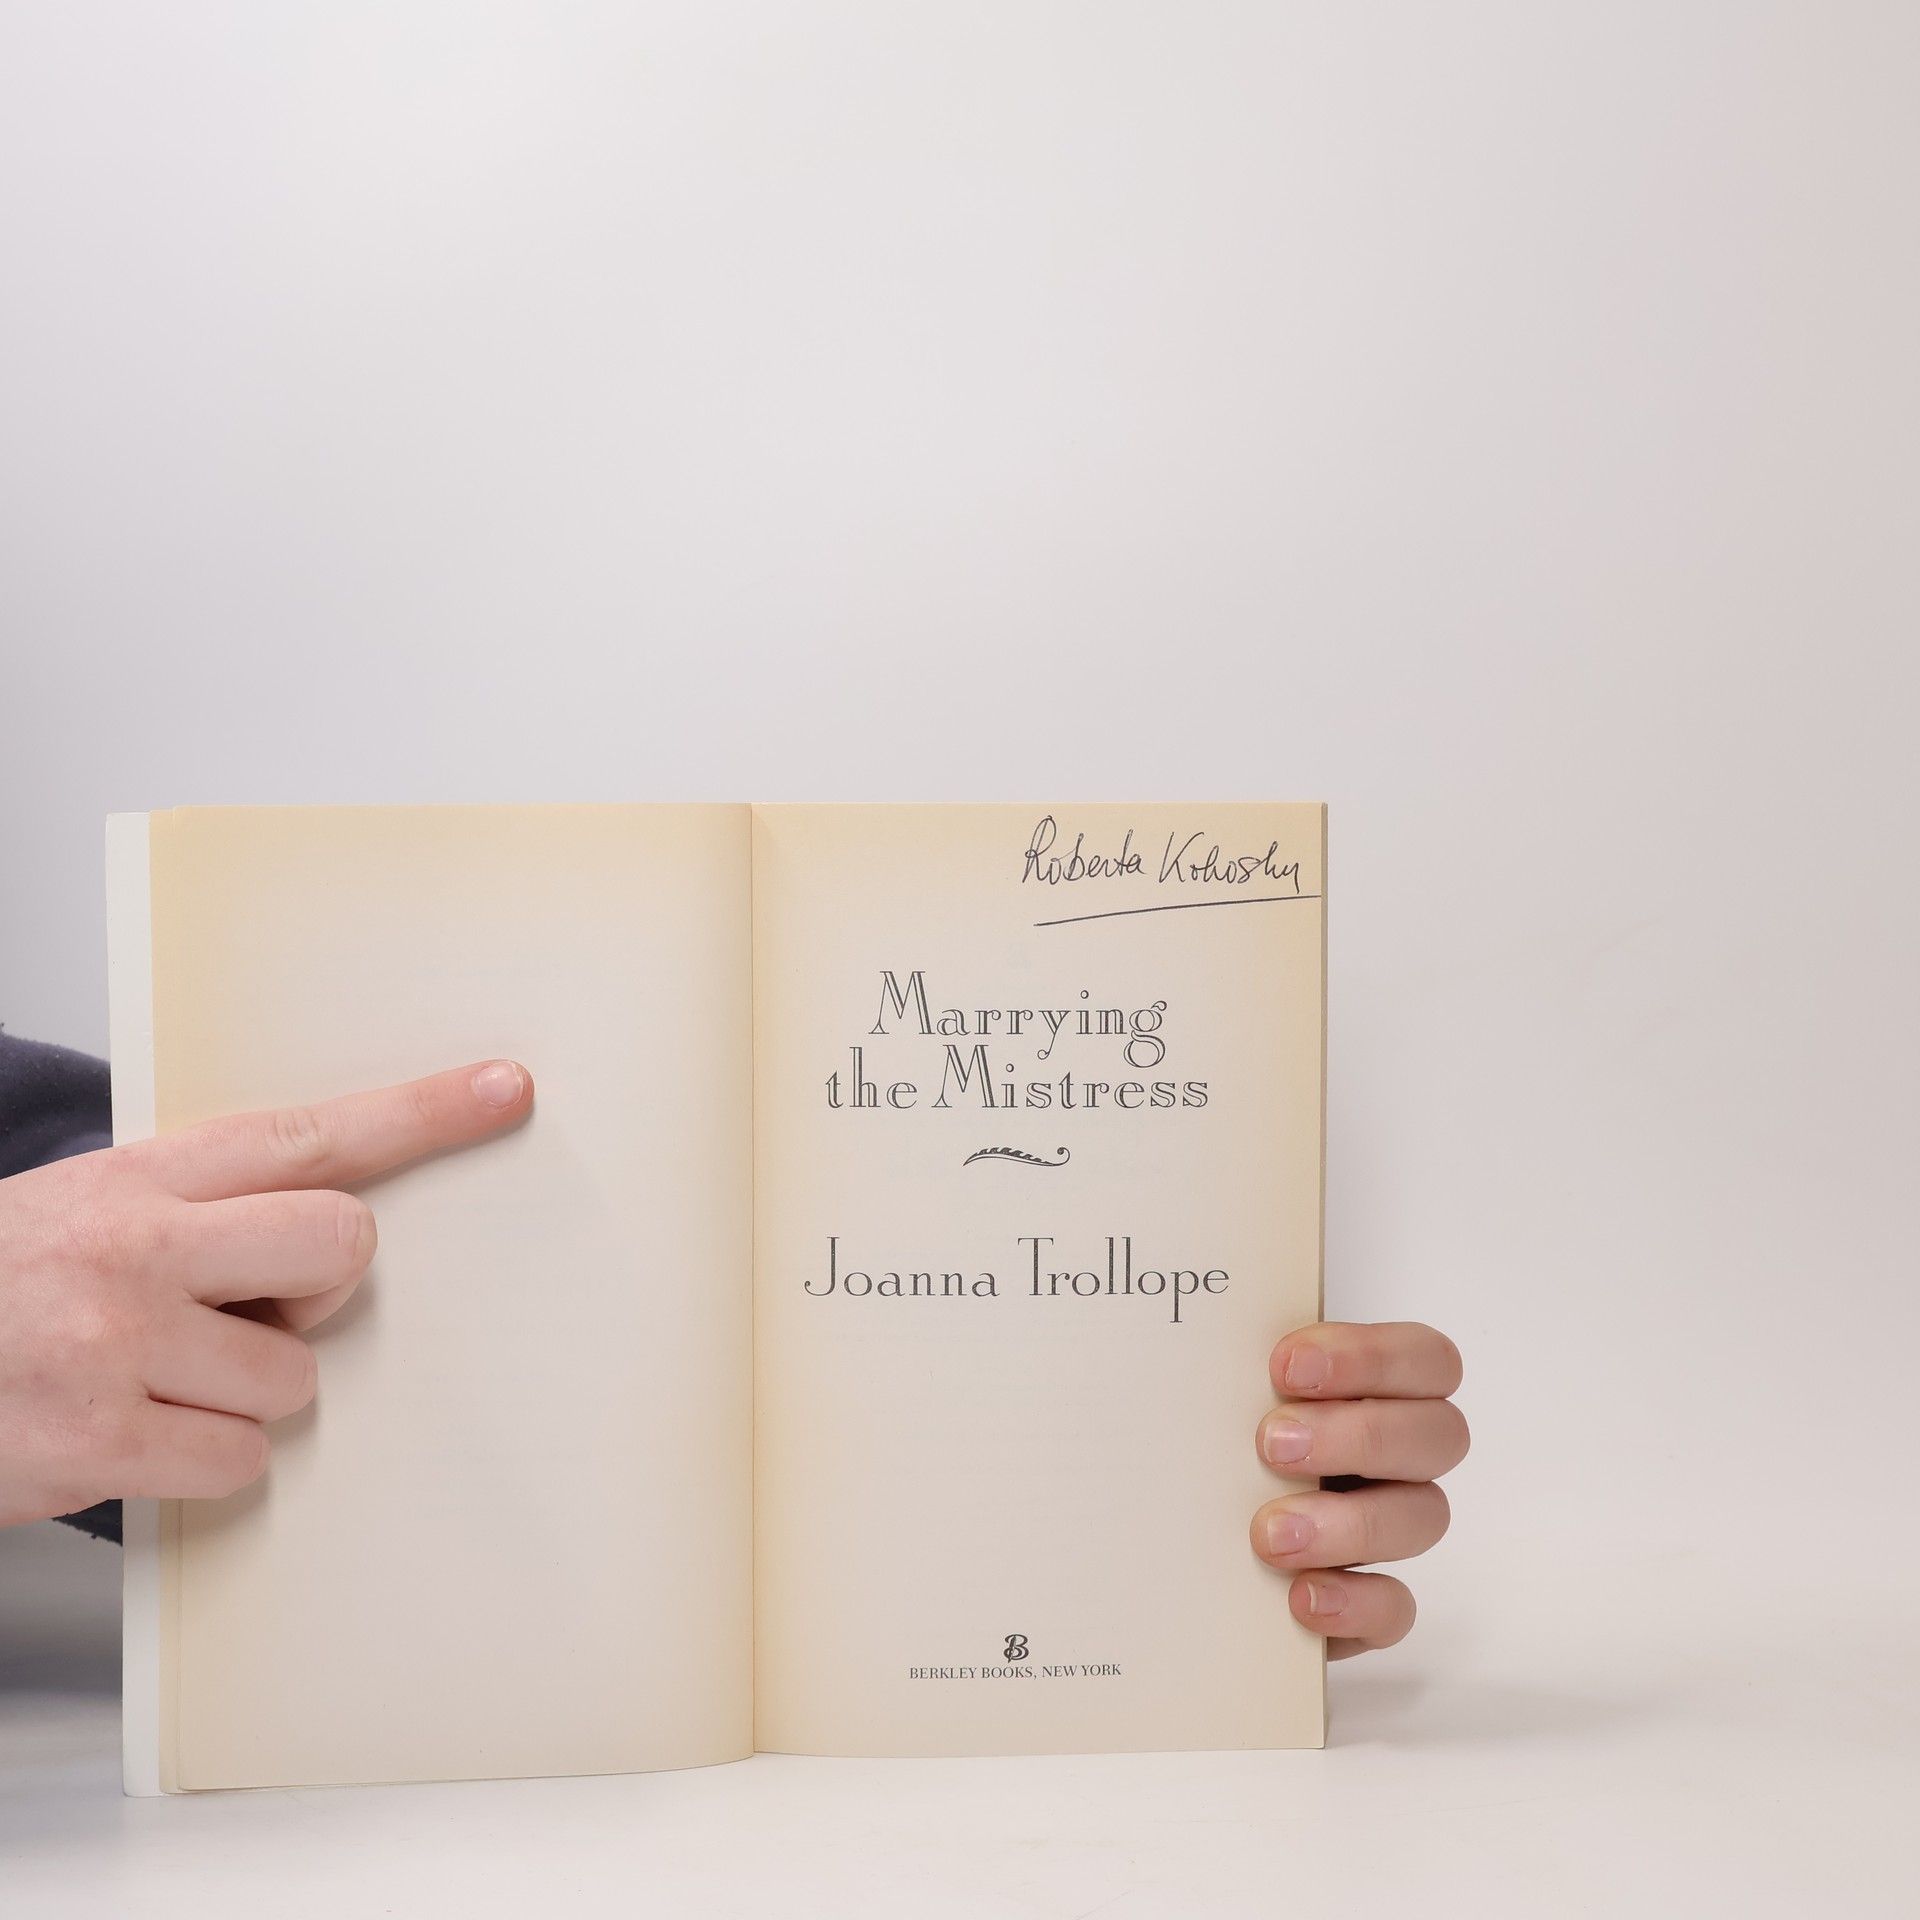 Roberta Kohosky
Marrying
the Mistress
Joanna Trollope
B
BERKLEY BOOKS, NEW YORK